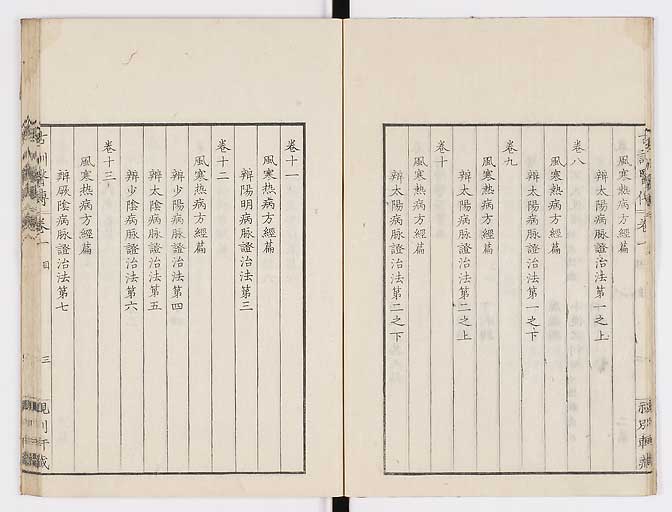 風寒熱病方經篇
辨太陽病脉證治法第一之上
卷八
風寒熱病方經篇
辨太陽病脉證治法第一之下
卷九
風寒熱病方經篇
辨太陽病脉證治法第二之上
卷十
風寒熱病方經篇
辨太陽病脉證治法第二之下
卷十一
風寒熱病方經篇
辨陽明病脉證治法第三
卷十二
風寒热病方經篇
辨少陽病脉證治法第四
辨太陰病脉證治法第五
辨少陰病脉證治法第六
卷十三
風寒热病方經篇
辨厥陰病脉證治法第七
古訓醫傳 卷一 目 三